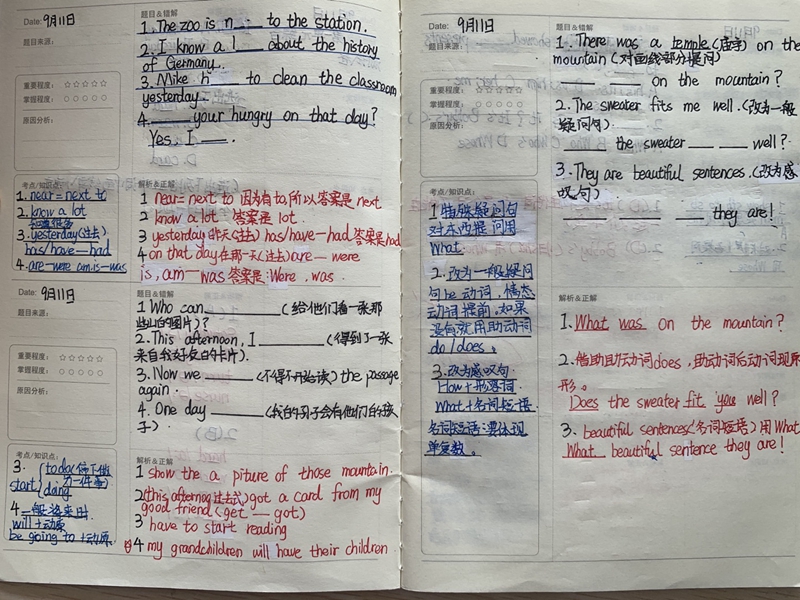 Date: 9月11日
题目来源:
重要程度: ☆☆☆☆☆
掌握程度: ○○○○○
原因分析:
题目&错解
1. The zoo is n___ to the station.
2. I know a l___ about the history
of Germany.
3. Mike h___ to clean the classroom
yesterday.
4. ____ your hungry on that day?
Yes, I ___.
考点/知识点:
1. near = next to
2. know a lot
知道很多
3. yesterday(过去)
has/have—had
4. are—were am.is—was
解析&正解
1 near = next to 因为有to,所以答案是next
2 know a lot 答案是 lot.
3 yesterday(昨天(过去)) has/have—had 答案是had
4 on that day 在那一天(过去) are—were
is, am—was 答案是: Were, was.
Date: 9月11日
题目来源:
重要程度: ☆☆☆☆☆
掌握程度: ○○○○○
原因分析:
题目&错解
1 Who can ______ (给他们看一张那
些山的图片)?
2. This afternoon, I ______ (得到了一张
来自我好友的卡片).
3. Now we ______ (不得不开始读) the passage
again.
4. One day ______ (我的孙子会有他们的孩
子).
考点/知识点:
3.
start
to do(停下做
另一件事)
doing
4 一般将来时
will+动原
be going to +动原.
解析&正解
1 show the a piture of those mountain.
2 (this afternoon过去式) got a card from my
good friend (get — got)
3 have to start reading
4 my grandchildren will have their children
Date: 9月11日
题目来源:
重要程度: ☆☆☆☆☆
掌握程度: ○○○○○
原因分析:
题目&错解
1. There was a temple (庙宇) on the
mountain (对画线部分提问)
___ ___ on the mountain?
2. The sweater fits me well.(改为一般
疑问句).
___ the sweater ___ ___ well?
3. They are beautiful sentences.(改为感
叹句)
___ ___ ___ they are!
考点/知识点:
1 特殊疑问句
对东西提问用
What.
2. 改为一般疑问
句be动词,情态
动词提前.如果
没有就用助动词
do/does。
3. 改为感叹句.
How+形容词.
What+名词短语
名词短语:要体现
单复数。
解析&正解
1. What was on the mountain?
2. 借助助动词does,助动词后动词现原
形。
Does the sweater fit you well?
3. beautiful sentences(名词短语)用What
What beautiful sentence they are!